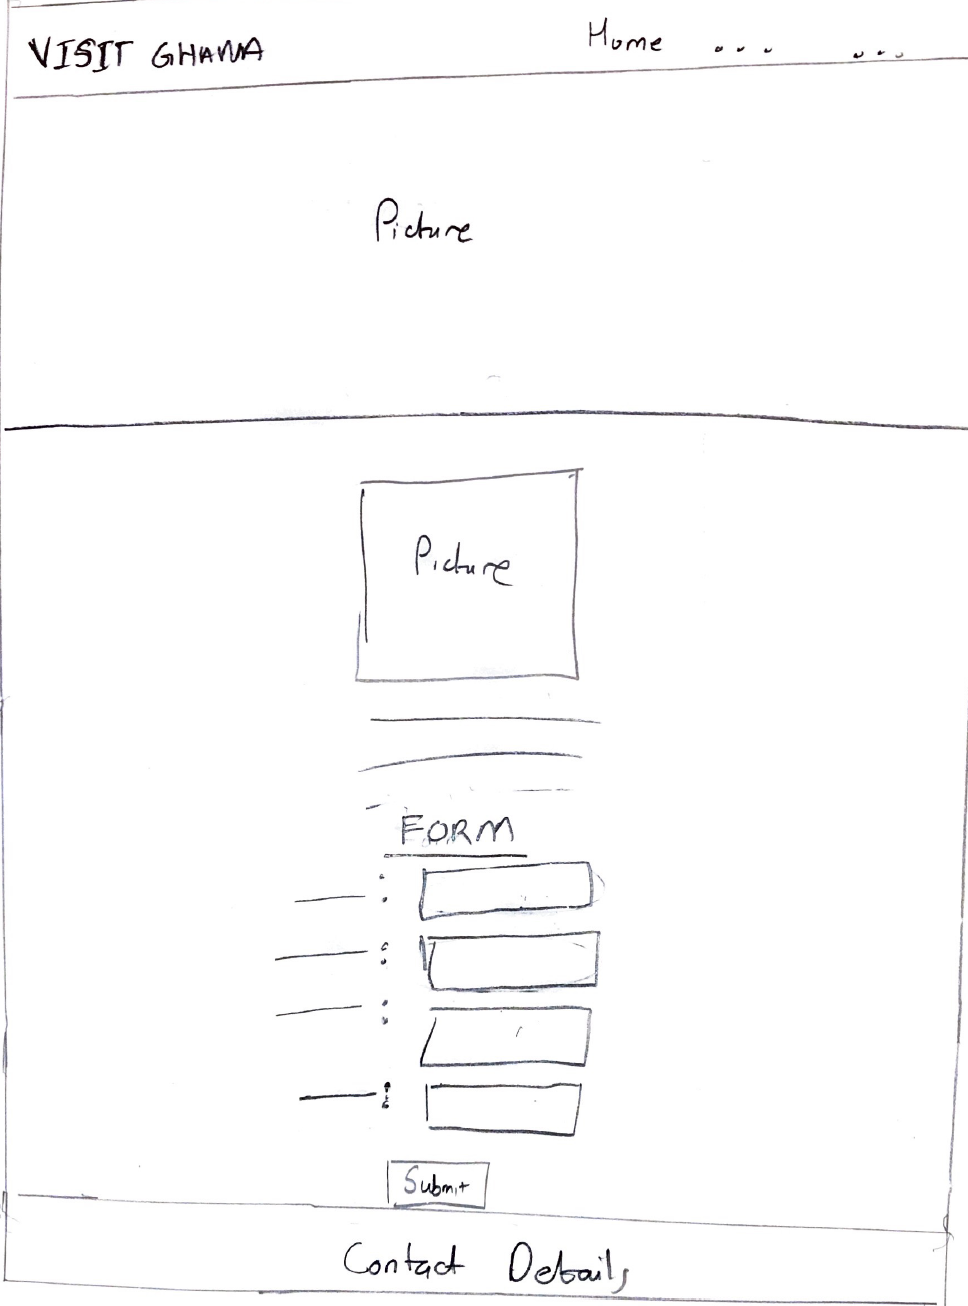 VISIT GHANA
Home ... ...
Picture
Picture
FORM
:
:
:
:
Submit
Contact Details